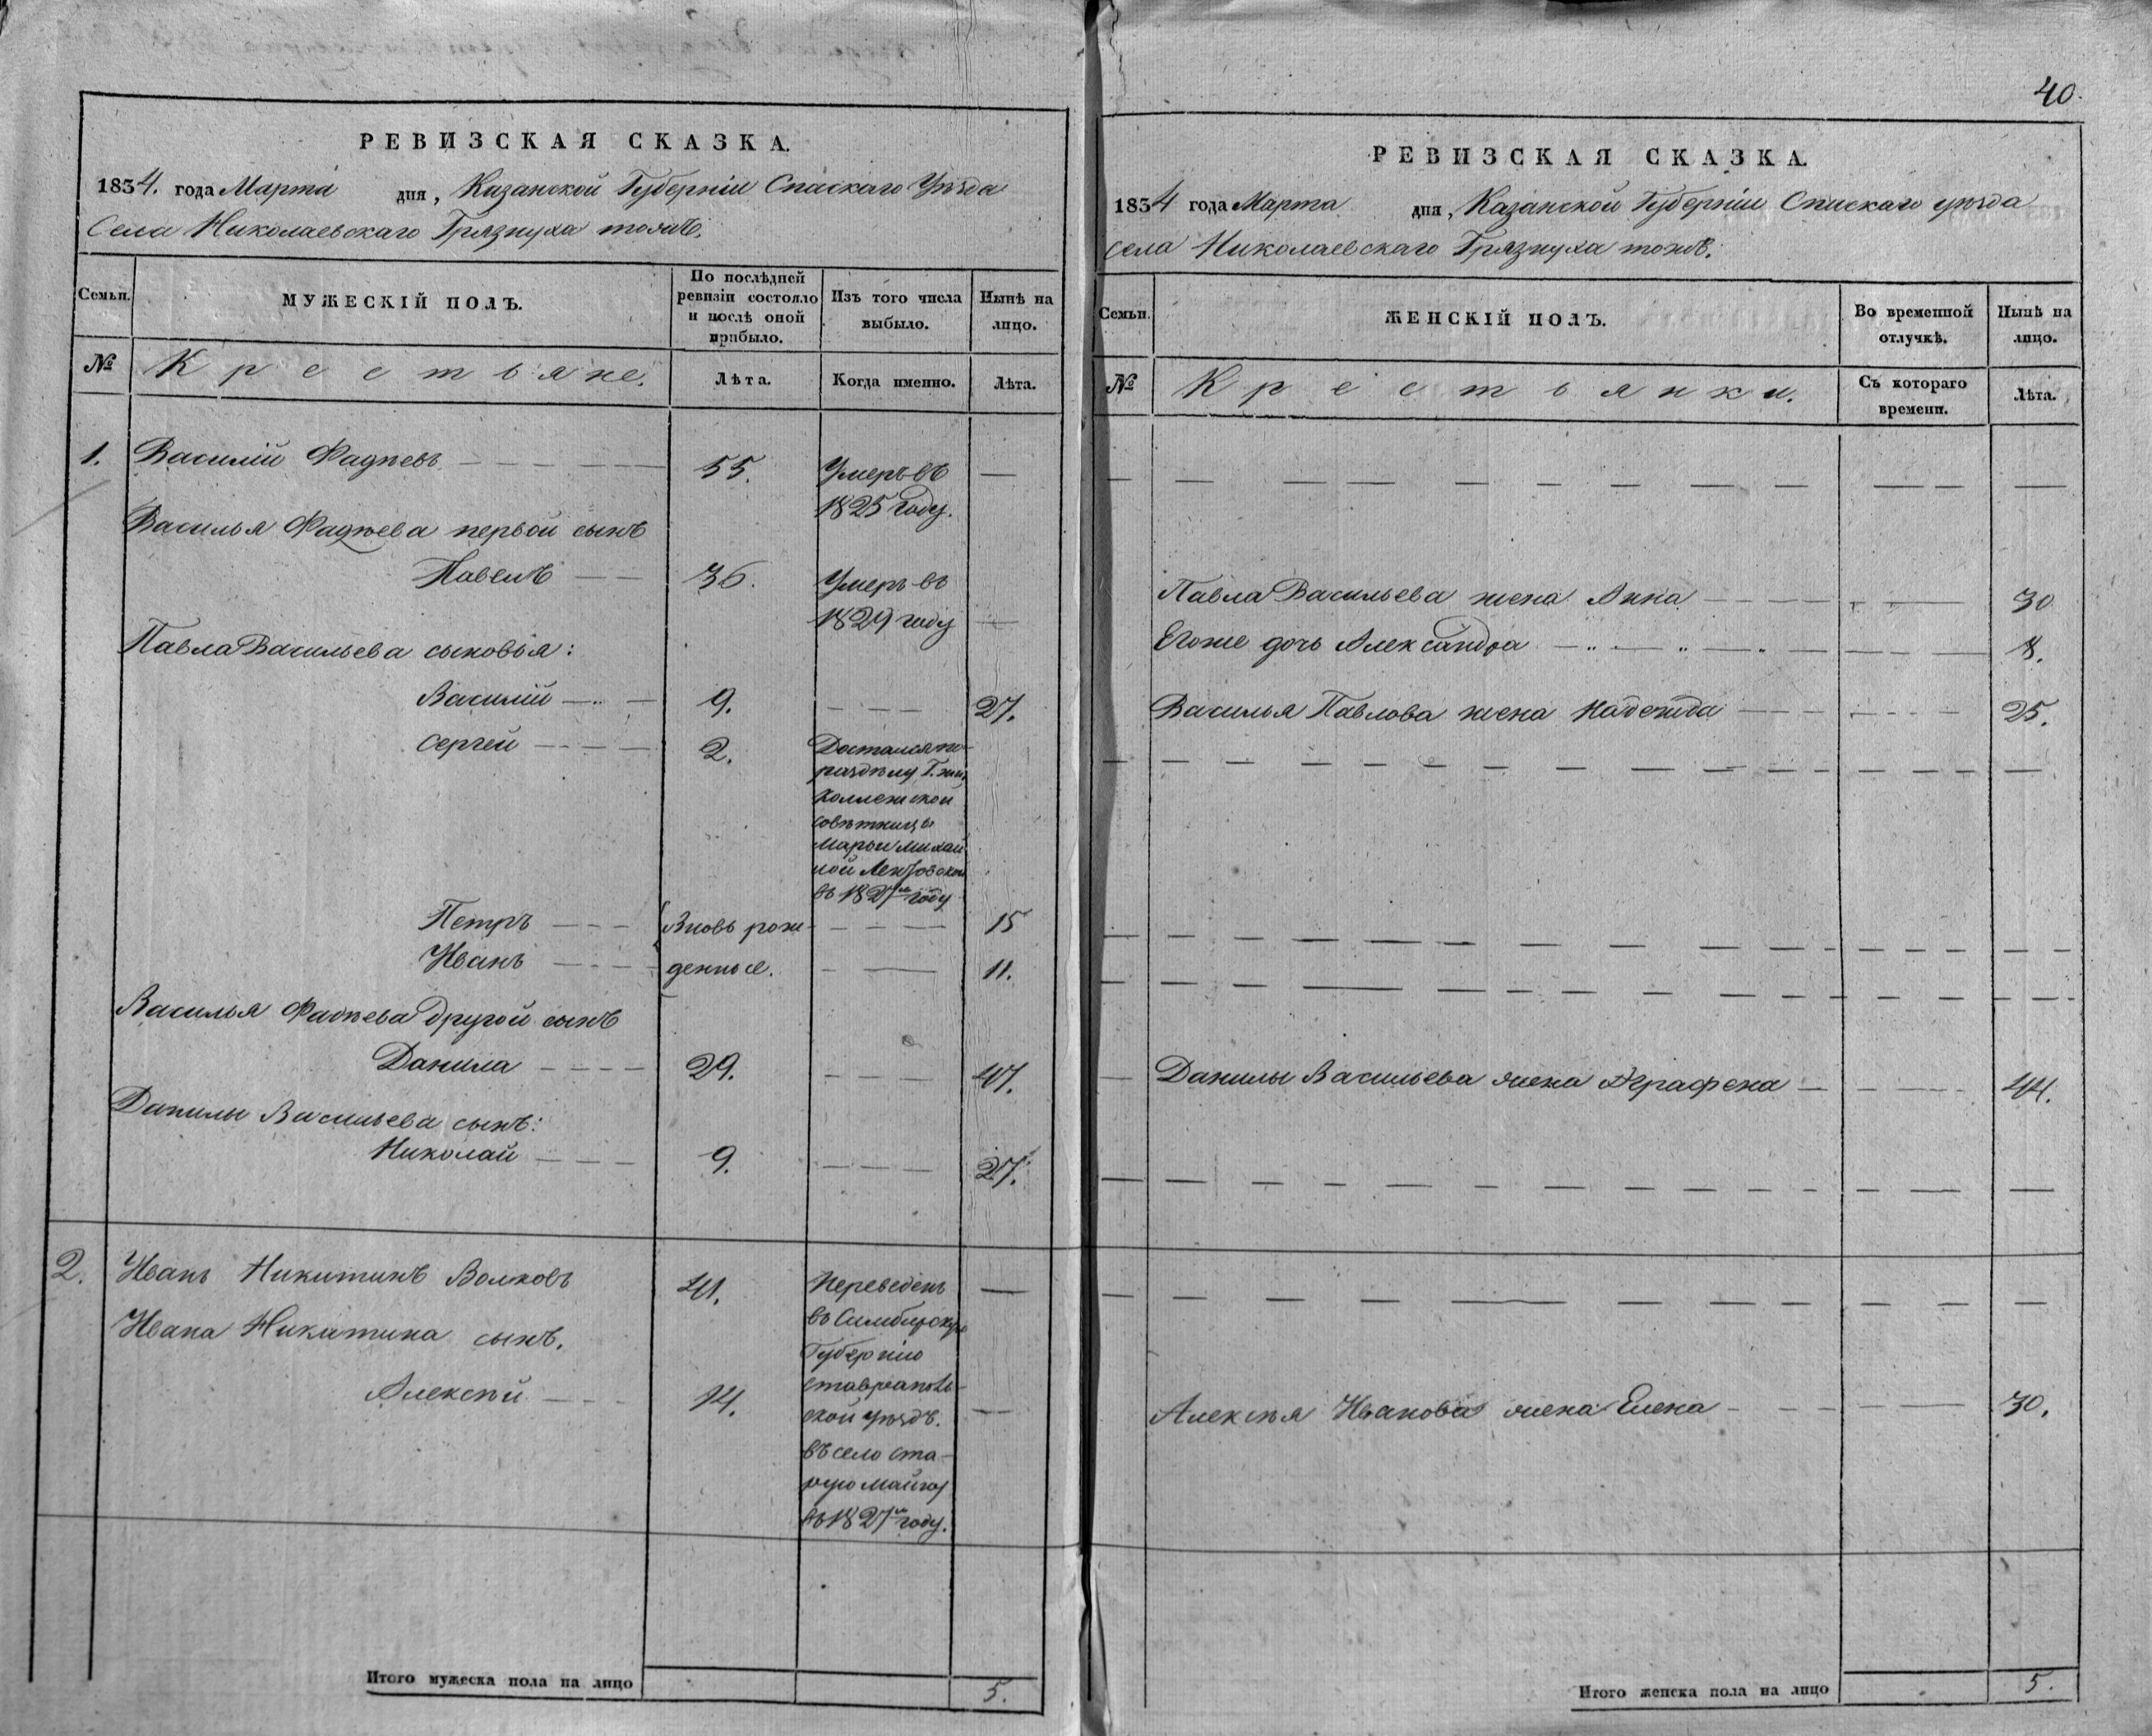 РЕВИЗСКАЯ СКАЗКА.
1834. года Марта дня, Казанской Губерніи Спаскаго Уѣзда
Села Николаевскаго Грязнуха тожъ.
Семьи.
МУЖЕСКІЙ ПОЛЪ.
По послѣдней ревизіи состояло и послѣ оной прибыло.
Изъ того числа выбыло.
Нынѣ на лицо.
№
Крестьяне.
Лѣта.
Когда именно.
Лѣта.
1. Василій Фадѣевъ 55. Умеръ въ
1825 году.
Василья Фадѣева первой сынъ
Павелъ 36. Умеръ въ
1829 году
Павла Васильева сыновья:
Василій 9. 27.
Сергей 2. Достался по
раздѣлу Г. жи,
Коллежской
совѣтницы
Марьи Михай
ной
въ 1827м году
Петръ Вновь рож- 15
Иванъ денные. 11.
Василья Фадѣева другой сынъ
Данила 29. 47.
Данилы Васильева сынъ:
Николай 9. 27.
2. Иванъ Никитинъ Волковъ 41. Переведенъ
въ Симбирскую
Ивана Никитина сынъ.
Губернію
Ставрополь-
Алексѣй 14. ской уѣздъ.
въ село Ста-
рую Майну
въ 1827м году.
Итого мужеска пола на лицо 5.
40.
РЕВИЗСКАЯ СКАЗКА.
1834 года Марта дня, Казанской Губерніи Спаскаго уѣзда
села Николаевскаго Грязнуха тожъ.
Семьи.
ЖЕНСКІЙ ПОЛЪ.
Во временной отлучкѣ.
Нынѣ на лицо.
№
Крестьянки.
Съ котораго времени.
Лѣта.
Павла Васильева жена Анна 30
Егоже дочь Александра 8.
Василья Павлова жена Надежда 25.
Данилы Васильева жена Аграфена 44.
Алексѣя Иванова жена Елена 30.
Итого женска пола на лицо 5.